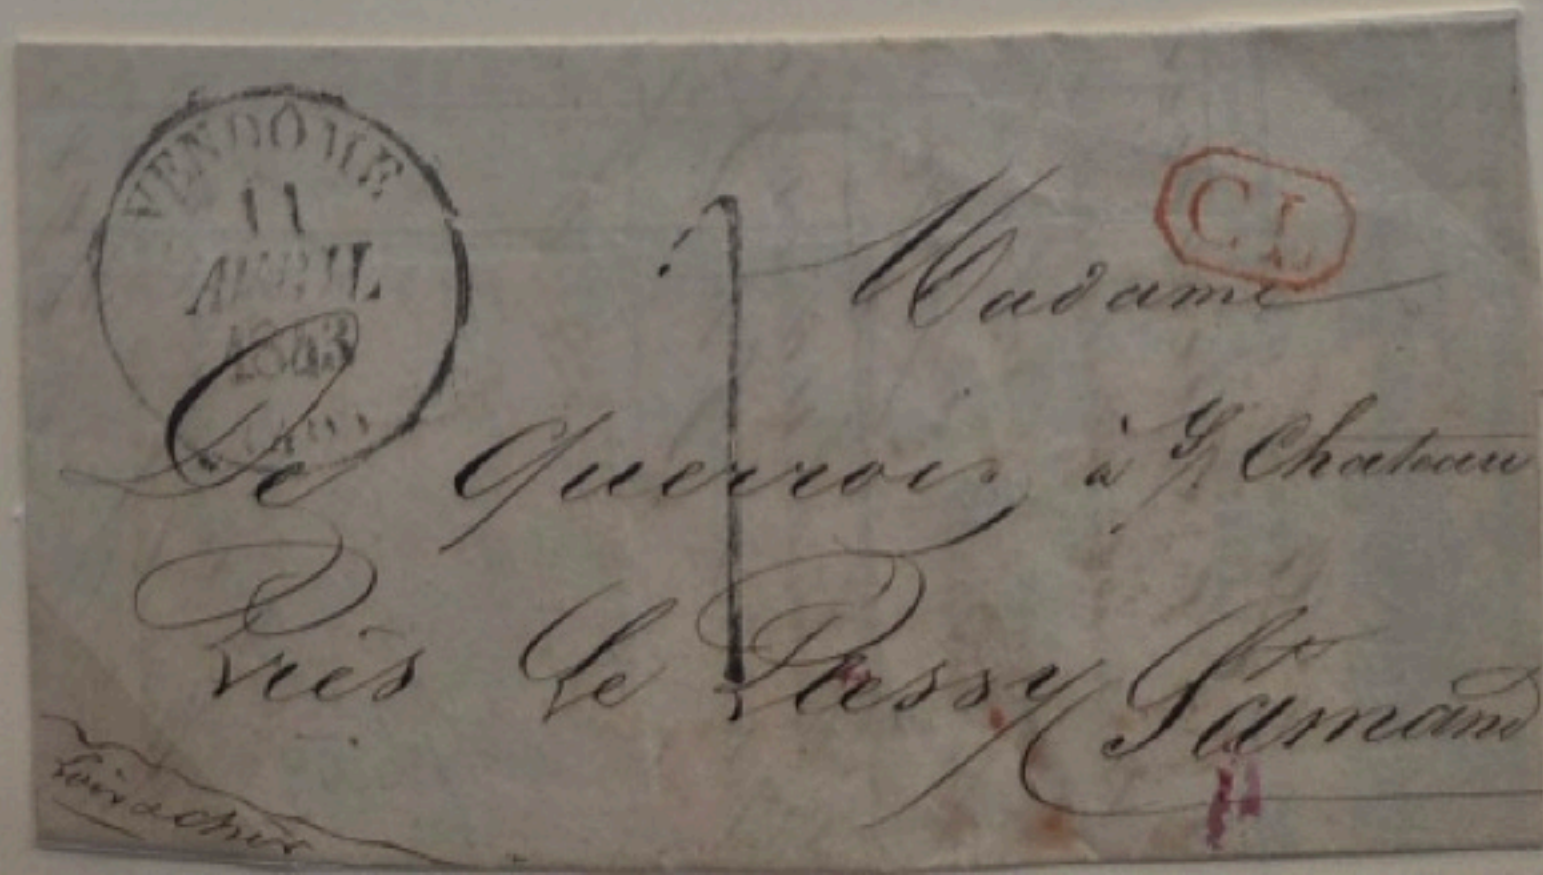 VENDÔME
11
AVRIL
1843
C L
1
Madame
De Querroix à Chateau
Près Le Plessy St amand
Loir & Cher